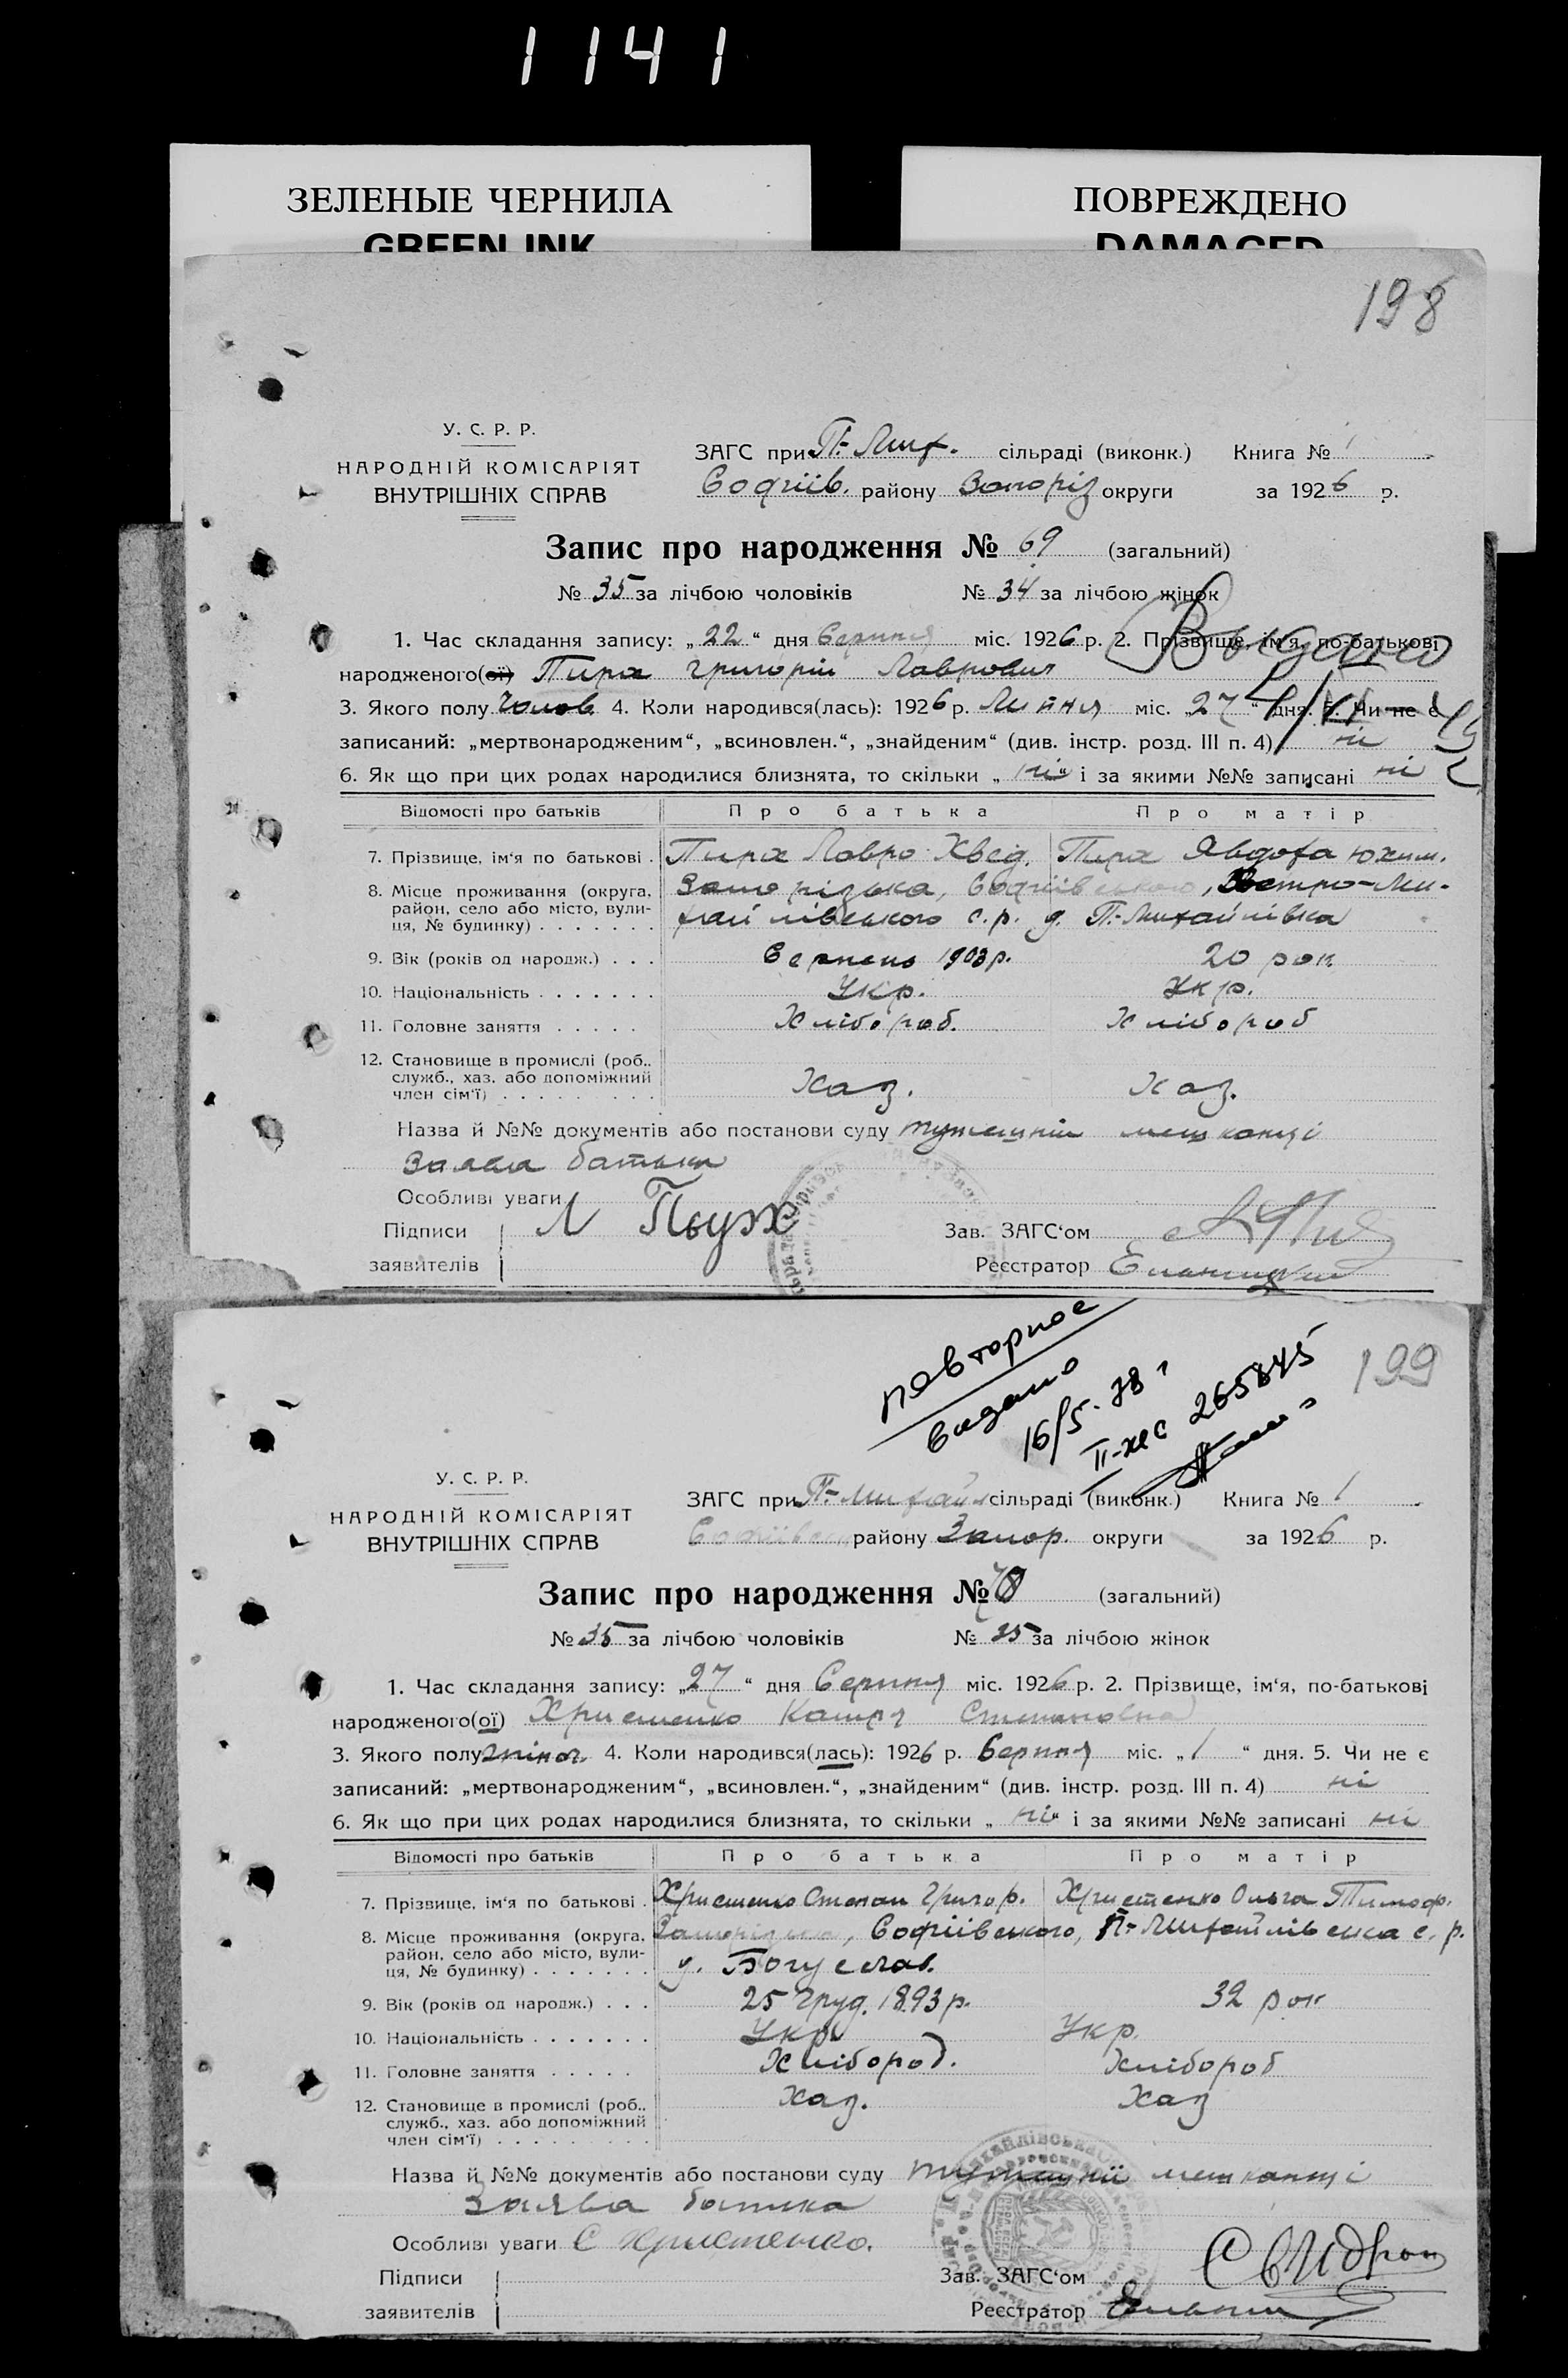 1141
ЗЕЛЕНЫЕ ЧЕРНИЛА
GREEN INK
ПОВРЕЖДЕНО
DAMAGED
198
У. С. Р. Р.
НАРОДНІЙ КОМІСАРІЯТ
ВНУТРІШНІХ СПРАВ
ЗАГС при П.-Мих. сільраді (виконк.) Книга № 1
Софіїв. району Запоріз округи за 1926 р.
Запис про народження № 69 (загальний)
№ 35 за лічбою чоловіків № 34 за лічбою жінок
Видано
1. Час складання запису: „22“ дня Серпня міс. 1926 р. 2. Прізвище, ім'я, по-батькові
народженого(ої) Пира Григорій Лаврович
3. Якого полу Чолов 4. Коли народився(лась): 1926 р. Липня міс. „27“ дня. 5. Чи не є
записаний: „мертвонародженим“, „всиновлен.“, „знайденим“ (див. інстр. розд. III п. 4) ні
6. Як що при цих родах народилися близнята, то скільки „ні“ і за якими №№ записані ні
Відомості про батьків Про батька Про матір
7. Прізвище, ім'я по батькові . Пира Лавро Хвед. Пира Явдоха Юхим.
8. Місце проживання (округа, район, село або місто, вулиця, № будинку) Запорізька, Софіївського, Петро-Ми-
хайлівського с.р. д. П.-Михайлівка
9. Вік (років од народж.) . . . Серпень 1903 р. 20 рок.
10. Національність . . . . . . . Укр. Укр.
11. Головне заняття . . . . . Хлібороб. Хлібороб
12. Становище в промислі (роб., служб., хаз. або допоміжний член сім'ї) Хаз. Хаз.
Назва й №№ документів або постанови суду тутешні мешканці
Заява батька
Особливі уваги
Підписи
заявителів
Л
Зав. ЗАГС'ом
Реєстратор
повторное
видано
16/5-78 г
199
II-жс 265845
У. С. Р. Р.
НАРОДНІЙ КОМІСАРІЯТ
ВНУТРІШНІХ СПРАВ
ЗАГС при П-Михайл сільраді (виконк.) Книга № 1
Софіївськ району Запор. округи за 1926 р.
Запис про народження № 70 (загальний)
№ 35 за лічбою чоловіків № 35 за лічбою жінок
1. Час складання запису: „27“ дня Серпня міс. 1926 р. 2. Прізвище, ім'я, по-батькові
народженого(ої) Христенко Катря Степановна
3. Якого полу жіноч. 4. Коли народився(лась): 1926 р. Серпня міс. „1“ дня. 5. Чи не є
записаний: „мертвонародженим“, „всиновлен.“, „знайденим“ (див. інстр. розд. III п. 4) ні
6. Як що при цих родах народилися близнята, то скільки „ні“ і за якими №№ записані ні
Відомості про батьків Про батька Про матір
7. Прізвище, ім'я по батькові . Христенко Степан Григор. Христенко Ольга Тимоф.
8. Місце проживання (округа, район, село або місто, вулиця, № будинку) Запорізька, Софіївського, П-Михайлівська с. р.
д. Богуслав.
9. Вік (років од народж.) . . . 25 Груд. 1893 р. 32 рок
10. Національність . . . . . . . Укр. Укр.
11. Головне заняття . . . . . Хлібороб. Хлібороб
12. Становище в промислі (роб., служб., хаз. або допоміжний член сім'ї) Хаз. Хаз
Назва й №№ документів або постанови суду тутешні мешканці
Заява батька
Особливі уваги С Христенко.
Підписи
заявителів
Зав. ЗАГС'ом
Реєстратор